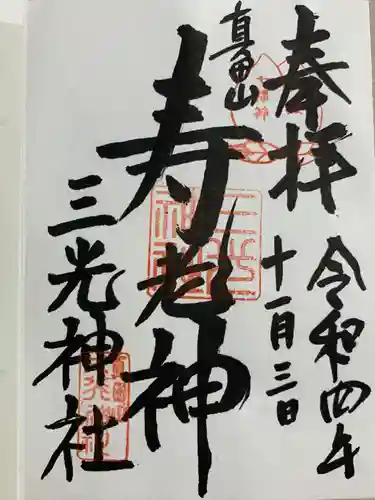 奉拝
令和四年
十一月三日
真田山
寿老神
三光神社
三光神社